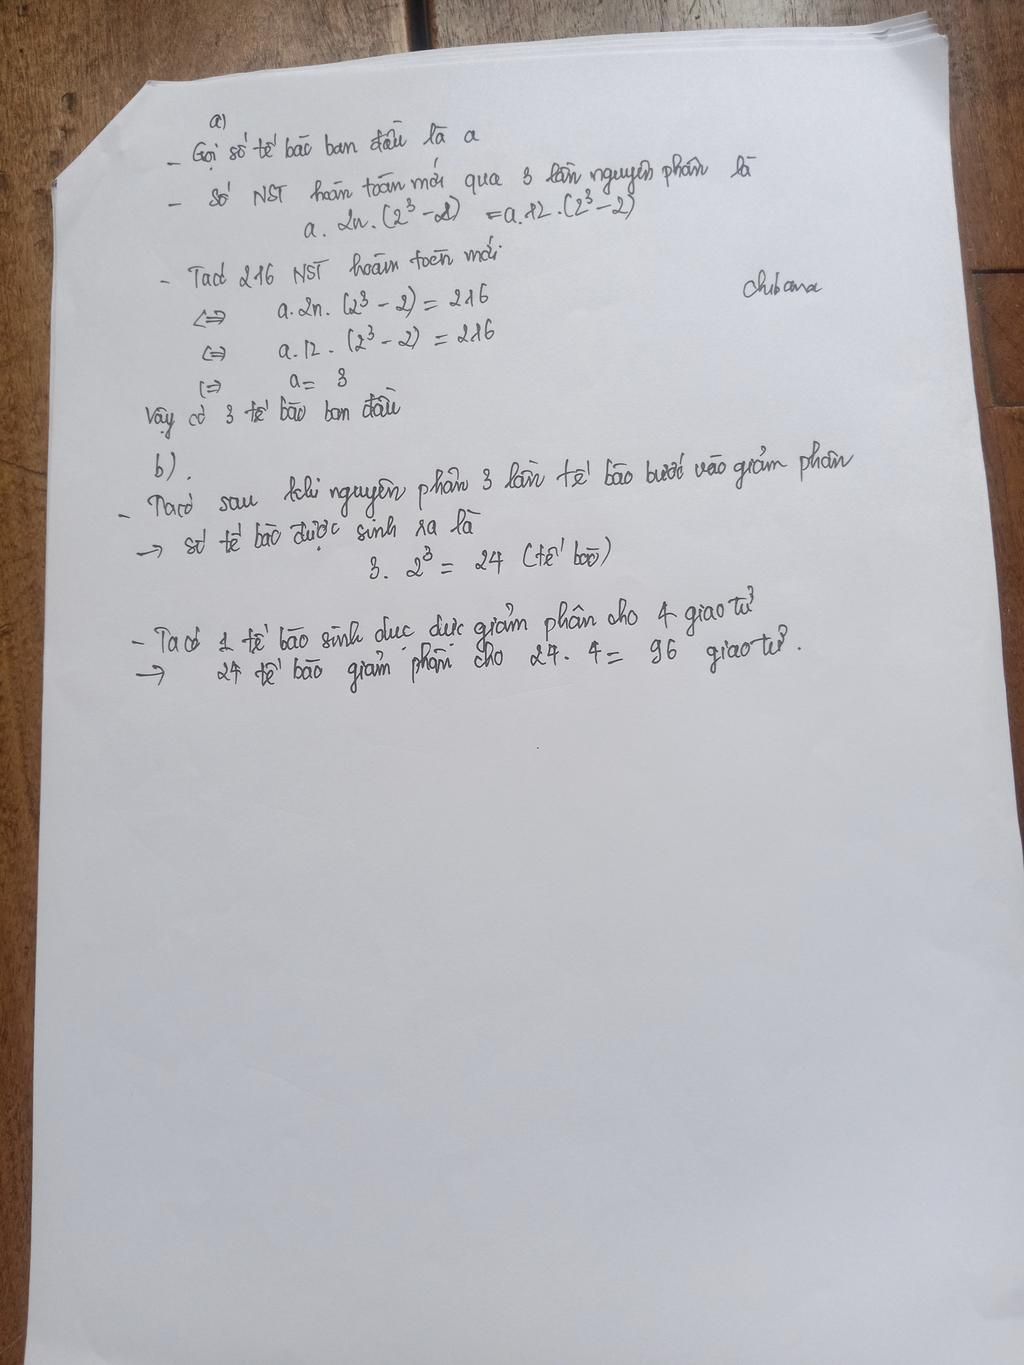 a)
- Gọi số tế bào ban đầu là a
- Số NST hoàn toàn mới qua 3 lần nguyên phân là
a. 2n. (2³ - 2) = a.12.(2³ - 2)
- Ta có 216 NST hoàn toàn mới
chibana
<=> a. 2n. (2³ - 2) = 216
<=> a. 12. (2³ - 2) = 216
<=> a = 3
Vậy có 3 tế bào ban đầu
b).
- Ta có sau khi nguyên phân 3 lần tế bào bước vào giảm phân
→ số tế bào được sinh ra là
3. 2³ = 24 (tế bào)
- Ta có 1 tế bào sinh dục đực giảm phân cho 4 giao tử
→ 24 tế bào giảm phân cho 24. 4 = 96 giao tử.